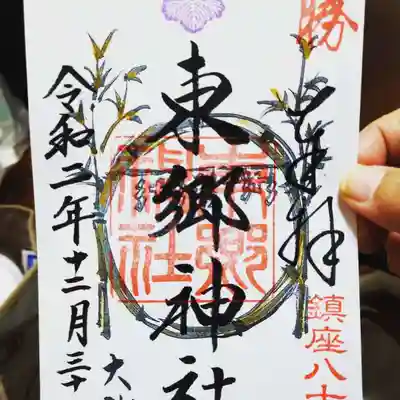 勝
奉拝
鎮座八十
東郷神社
令和二年十二月三十
大